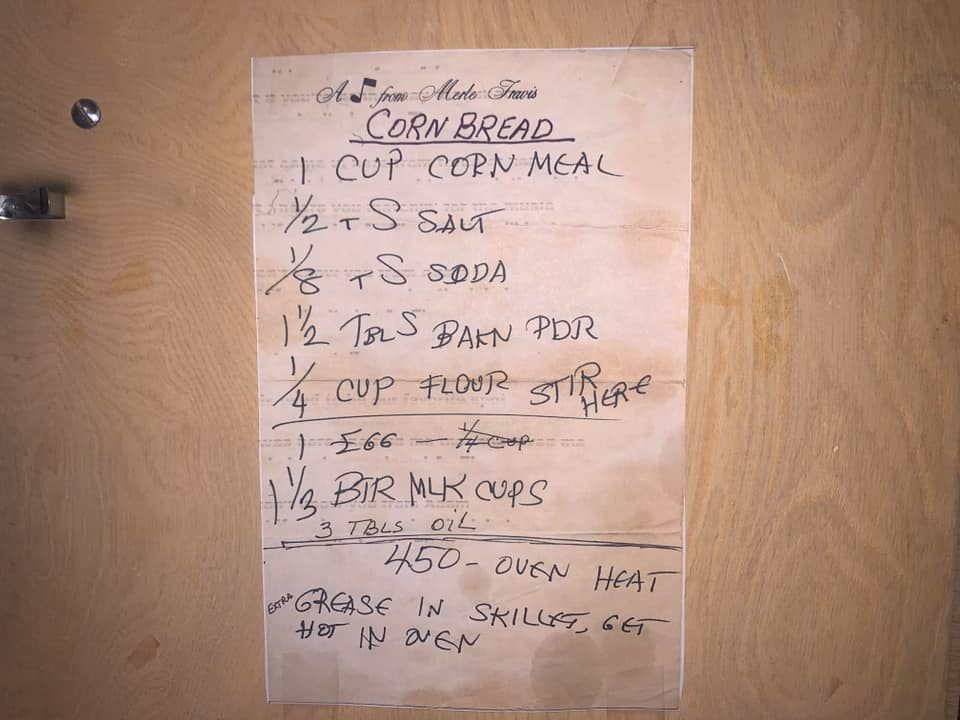 A ♪ from Merle Travis
CORN BREAD
1 CUP CORN MEAL
1/2 TS SALT
1/8 TS SODA
1 1/2 TBLS BAKN PDR
1/4 CUP FLOUR STIR HERE
1 EGG — 1/4 CUP
1 1/3 BTR MLK CUPS
3 TBLS OIL
450 - OVEN HEAT
EXTRA GREASE IN SKILLET, GET
HOT IN OVEN